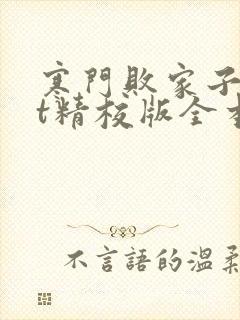 寒門敗家子
t精校版全
不言語的溫柔